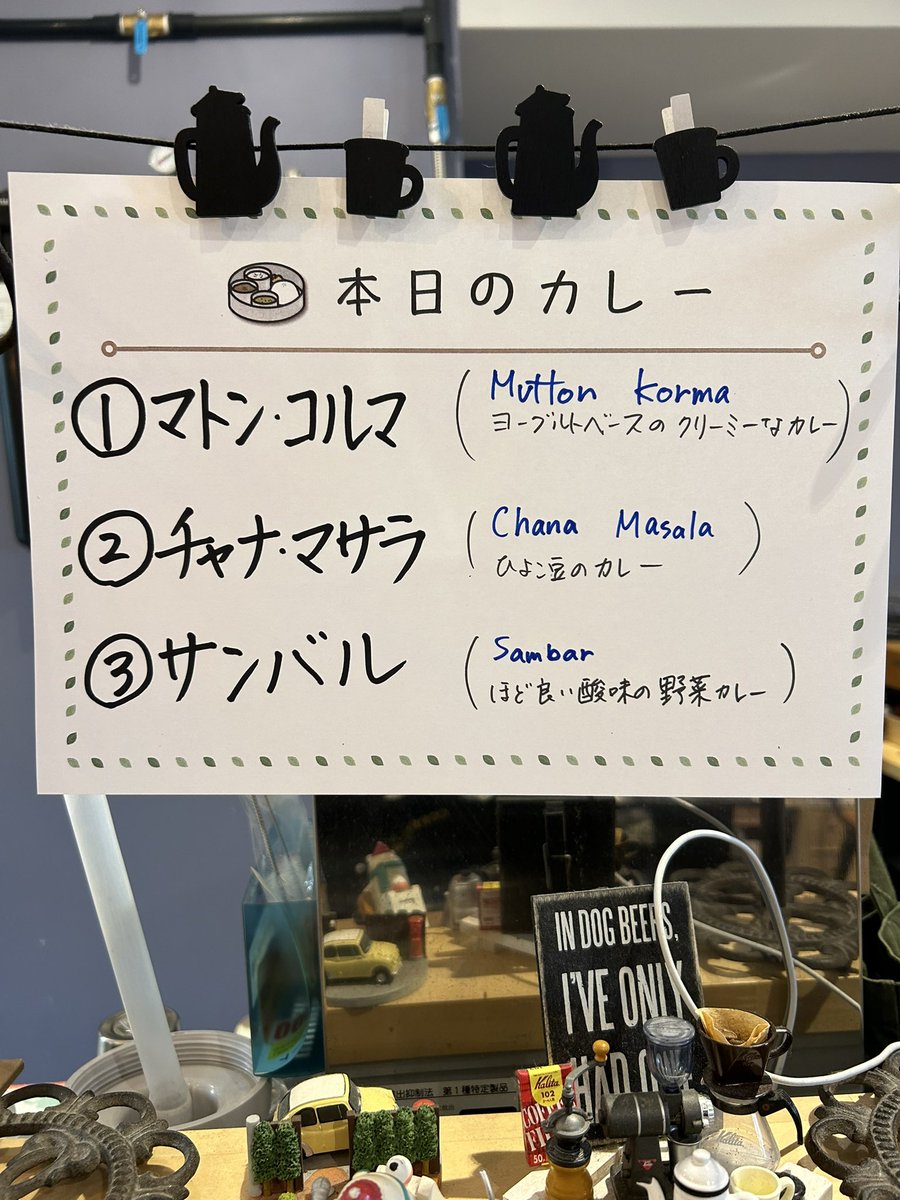 本日のカレー
①マトン・コルマ
(Mutton korma
ヨーグルトベースのクリーミーなカレー)
②チャナ・マサラ
(Chana Masala
ひよこ豆のカレー)
③サンバル
(Sambar
ほど良い酸味の野菜カレー)
IN DOG BEERS,
I'VE ONLY
HAD
出抑制法 第1種特定製品
Kalita
102
COFFEE
FI
50
Kalita